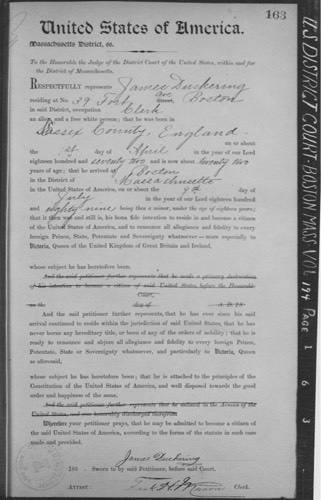 163
United States of America.
Massachusetts District, ss.
To the Honorable the Judge of the District Court of the United States, within and for
the District of Massachusetts.
RESPECTFULLY represents James Duckering
residing at No. 39 Fort Ave Street, Boston
in said District, occupation Clerk
an alien, and a free white person; that he was born in
Essex County, England
on or about
the 1st day of April in the year of our Lord
eighteen hundred and seventy two and is now about twenty two
years of age; that he arrived at Boston
in the District of Massachusetts
in the United States of America, on or about the 9th day of
July in the year of our Lord eighteen hundred
and eighty nine being then a minor, under the age of eighteen years;
that it then was and still is, his bona fide intention to reside in and become a citizen
of the United States of America, and to renounce all allegiance and fidelity to every
foreign Prince, State, Potentate and Sovereignty whatsoever—more especially to
Victoria, Queen of the United Kingdom of Great Britain and Ireland,
whose subject he has heretofore been.
And the said petitioner further represents that he made a primary declaration
of his intention to become a citizen of said United States, before the Honorable
Court,
on the day of A.D. 18
And the said petitioner further represents, that he has ever since his said
arrival continued to reside within the jurisdiction of said United States, that he has
never borne any hereditary title, or been of any of the orders of nobility; that he is
ready to renounce and abjure all allegiance and fidelity to every foreign Prince,
Potentate, State or Sovereignty whatsoever, and particularly to Victoria, Queen
as aforesaid,
whose subject he has heretofore been; that he is attached to the principles of the
Constitution of the United States of America, and well disposed towards the good
order and happiness of the same.
And the said petitioner further represents that he enlisted in the Armies of the
United States, and was honorably discharged therefrom
Wherefore your petitioner prays, that he may be admitted to become a citizen of
the said United States of America, according to the forms of the statute in such case
made and provided.
James Duckering
Sworn to by said Petitioner, before said Court.
ATTEST: Mason Clerk.
U.S DISTRICT COURT-BOSTON MASS VOL 194 PAGE 163